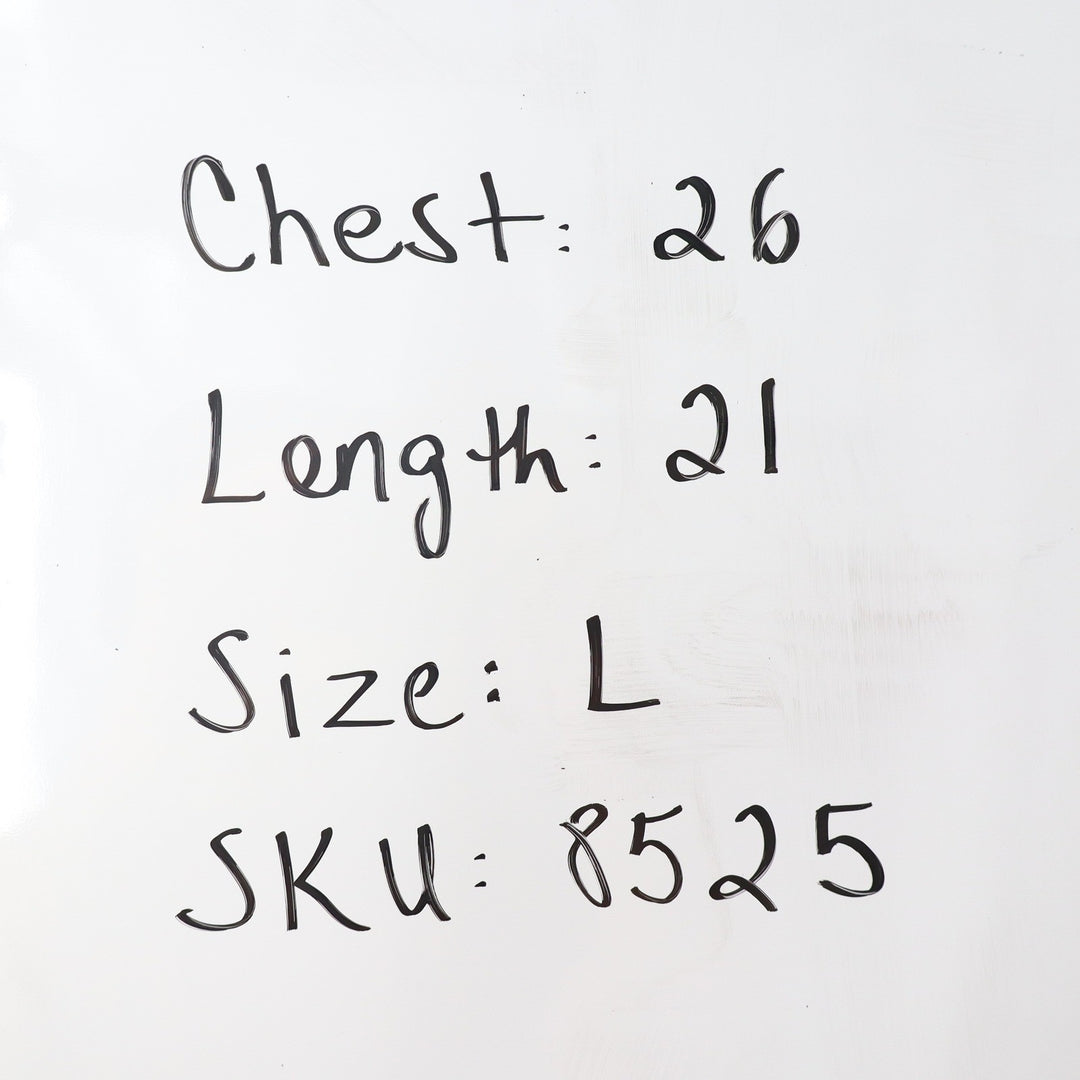 Chest: 26
Length: 21
Size: L
SKU: 8525